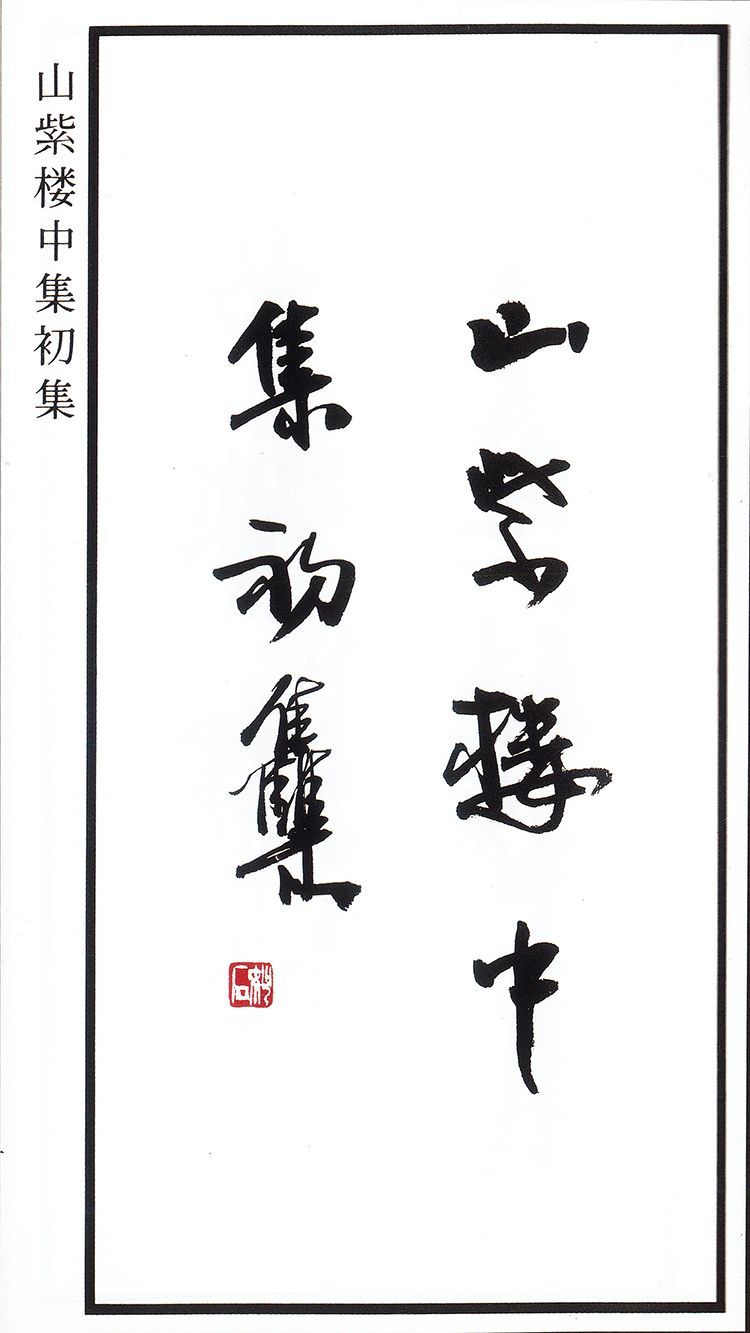 山紫樓中
集初雧
山紫楼中集初集